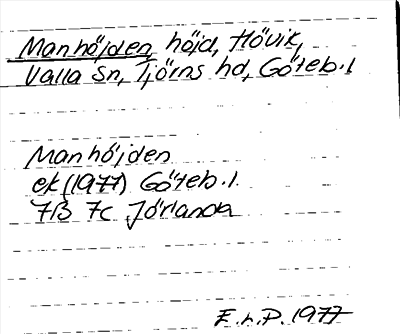 Manhöjden, höjd, Hövik,
Valla sn, Tjörns hd, Göteb. l
Manhöjden
ek (1977) Göteb. l.
7B 7c Jörlanda
E. h. P. 1977